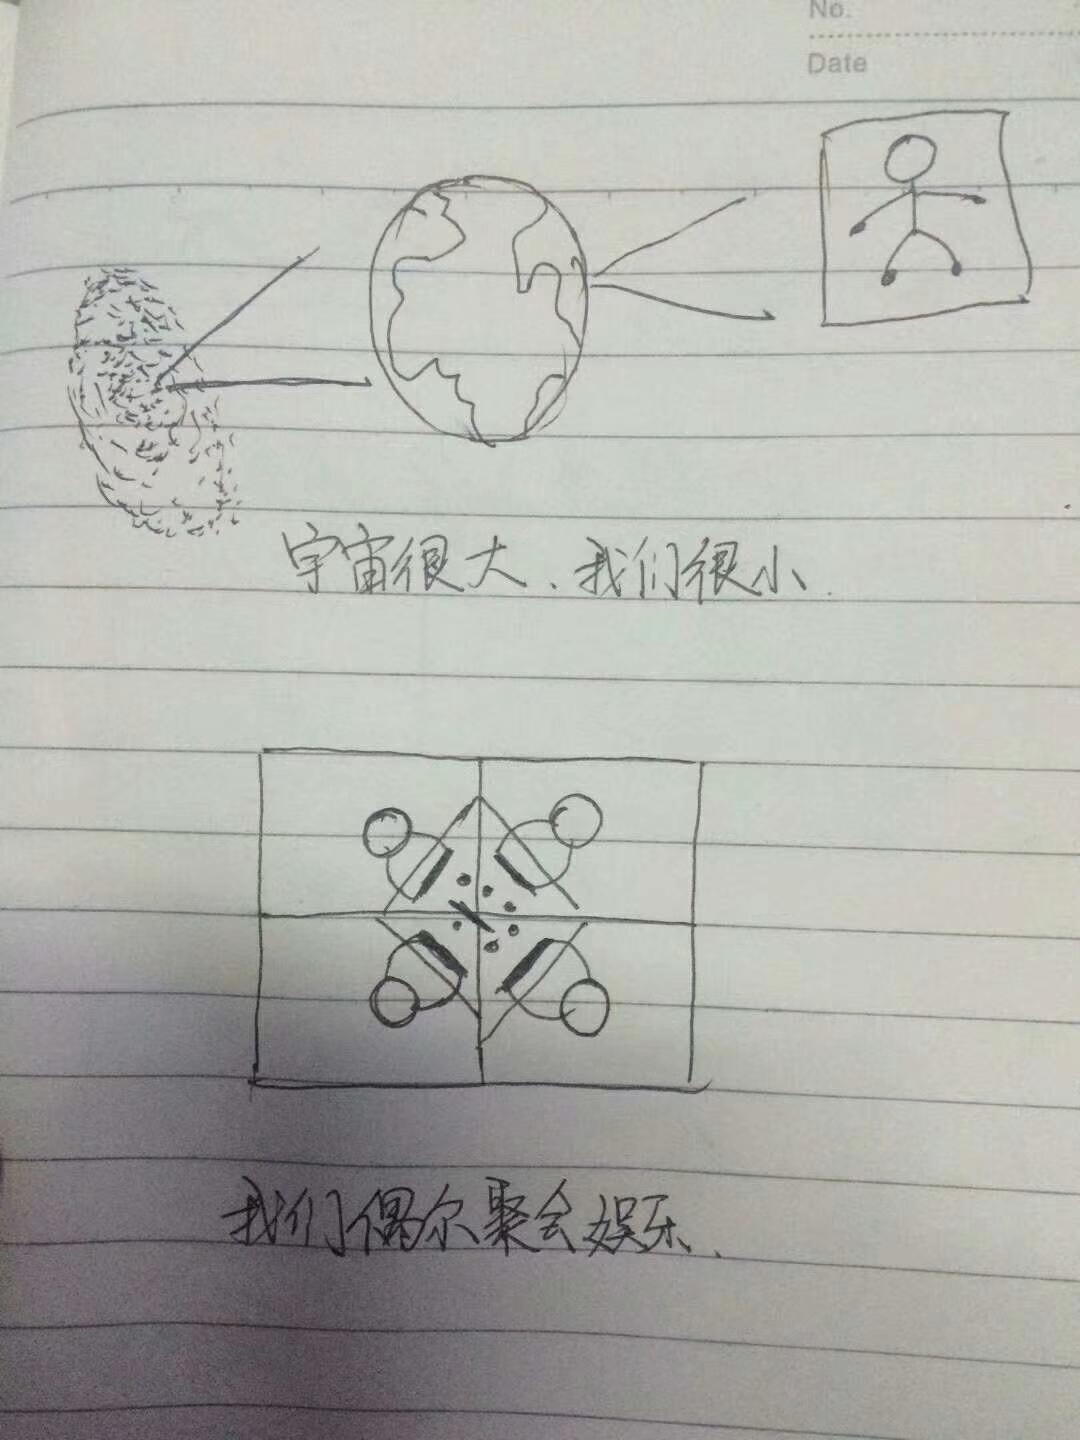 No.
Date
宇宙很大、我们很小.
我们偶尔聚会娱乐、